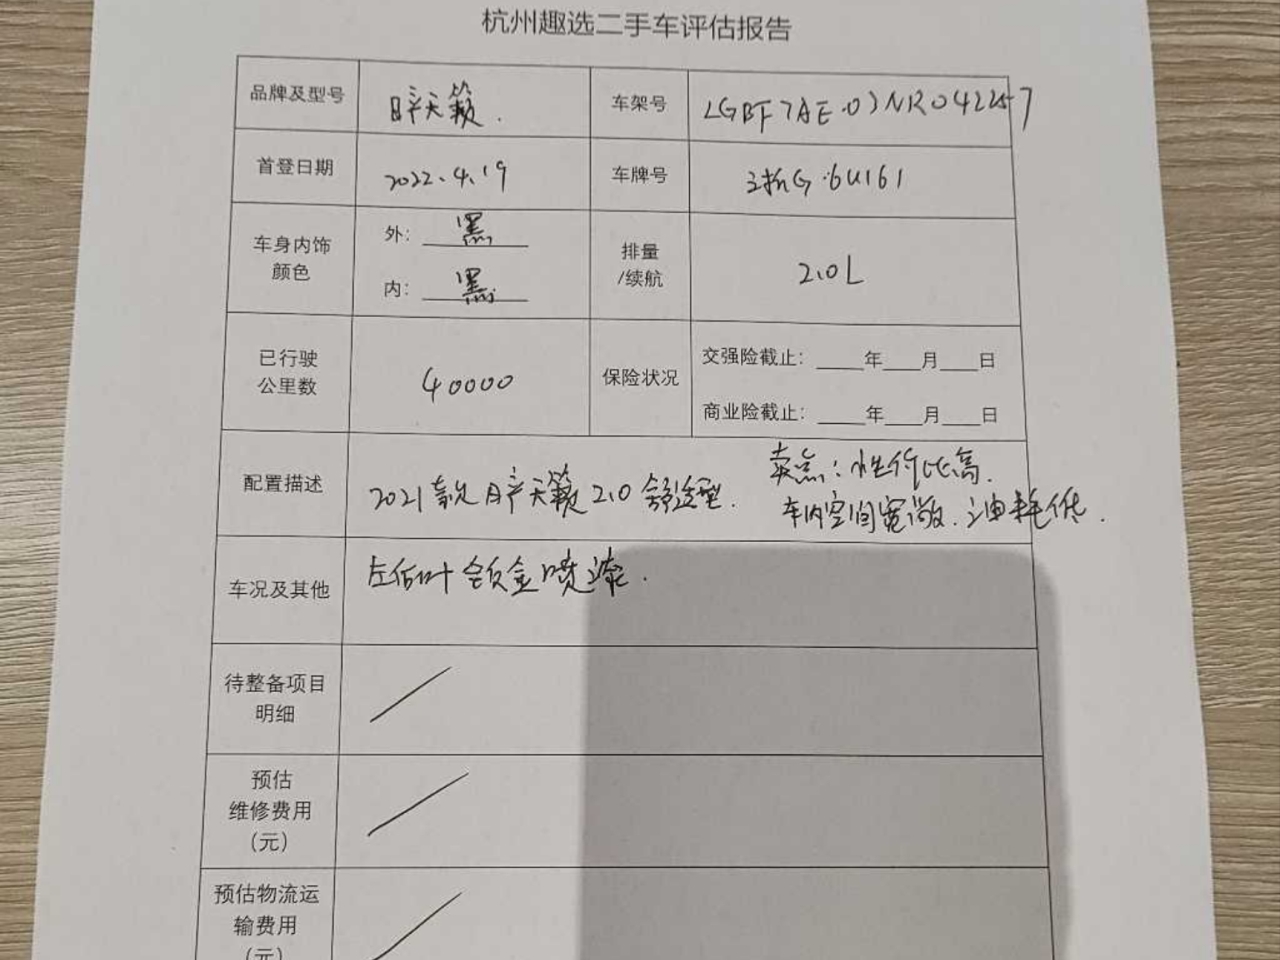 杭州趣选二手车评估报告
品牌及型号 日产天籁. 车架号 LGBF7AE03NR042257
首登日期 2022.4.19 车牌号 浙G·6U161
车身内饰颜色 外: 黑 内: 黑 排量/续航 2.0L
已行驶公里数 40000 保险状况 交强险截止: ____年___月___日
商业险截止: ____年___月___日
配置描述 2021款日产天籁2.0舒适型. 卖点:性价比高.
车内空间宽敞.油耗低.
车况及其他 左后叶钣金喷漆.
待整备项目明细
预估维修费用(元)
预估物流运输费用(元)